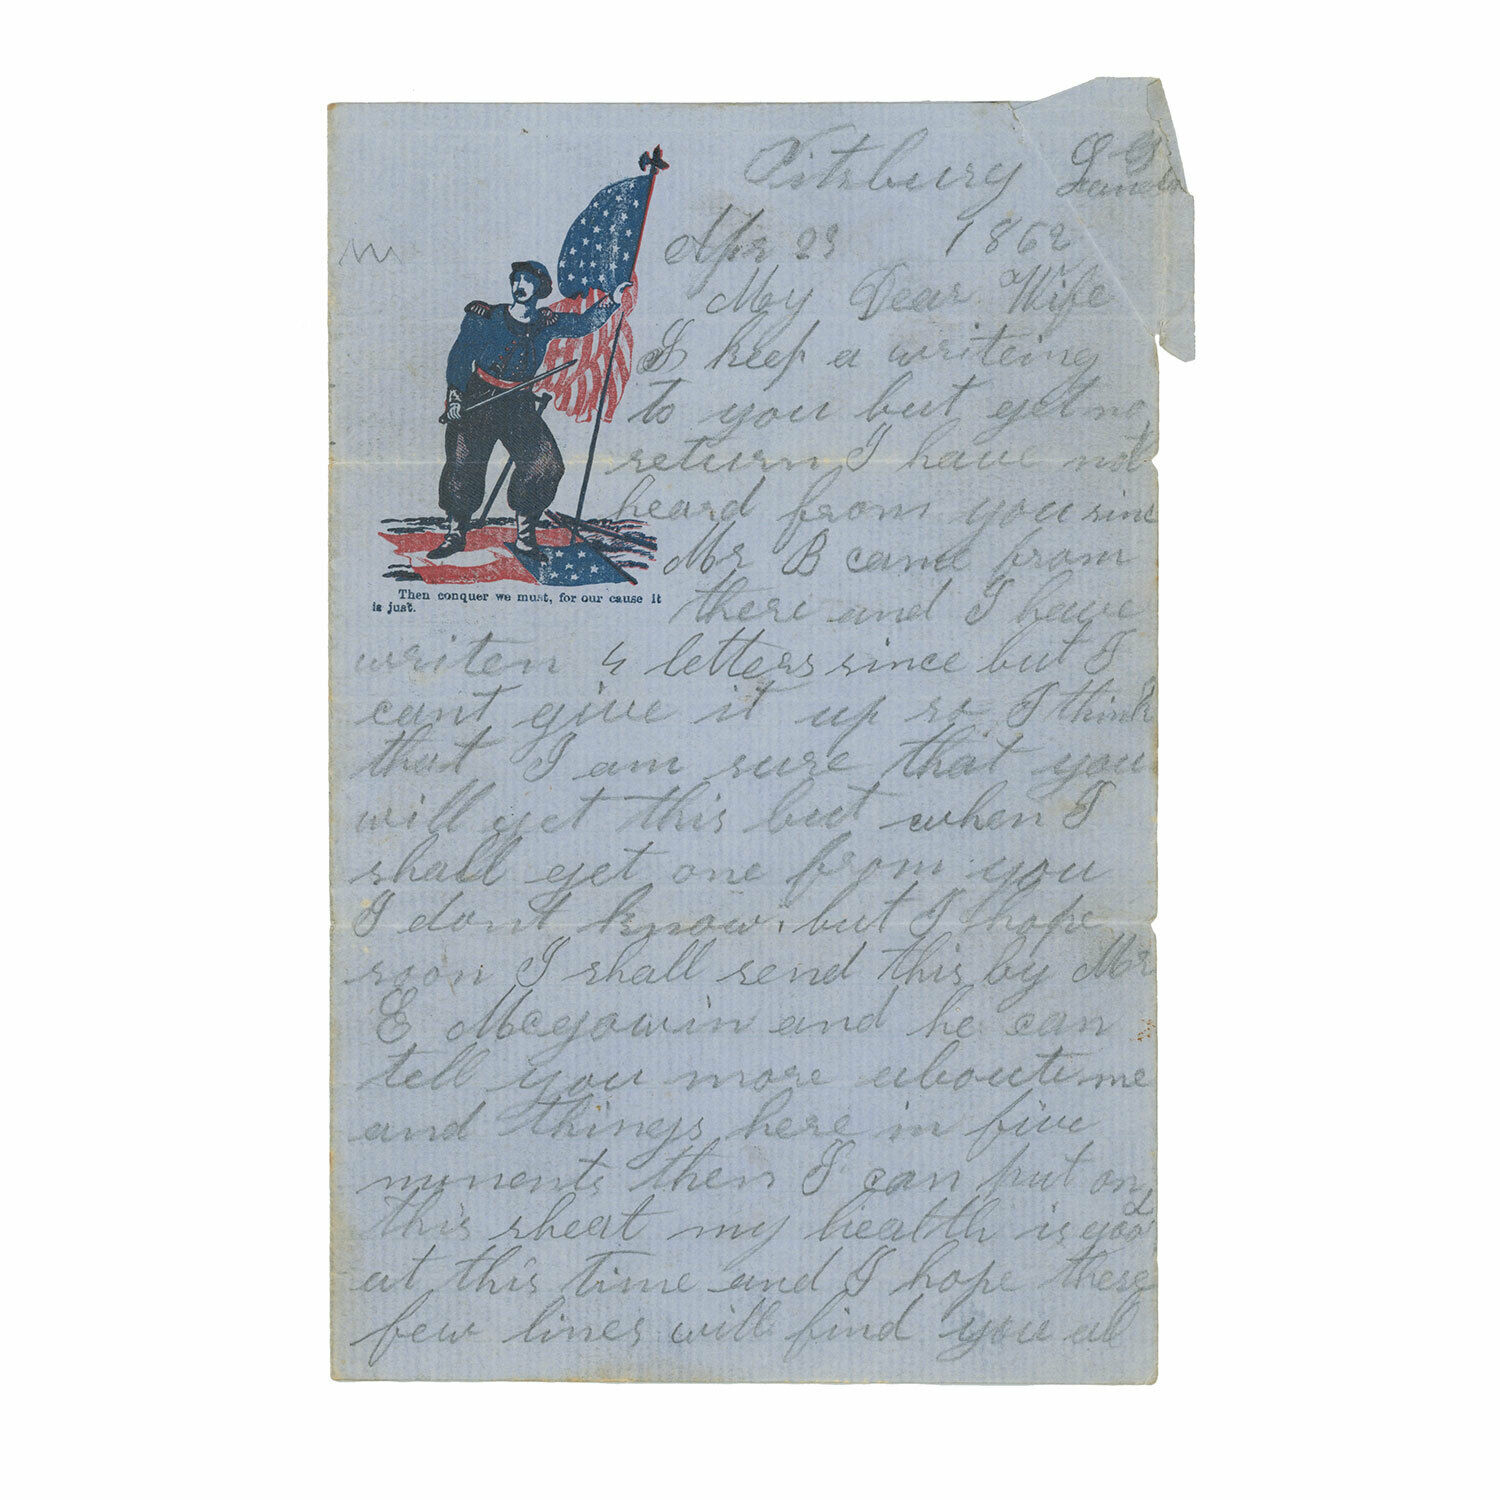 Pitsburg Landin
Apr 23 1862
My Dear Wife
I keep a writeing
to you but get no
return I have not
heard from you sinc
Mr B came from
there and I have
Then conquer we must, for our cause it
is just.
writen 4 letters since but I
cant give it up so I think
that I am sure that you
will get this but when I
shall get one from you
I dont know. but I hope
soon I shall send this by Mr
E Mcgowin and he can
tell you more about me
and things here in five
munents then I can put on
this sheat my health is good
at this time and I hope these
few lines will find you al